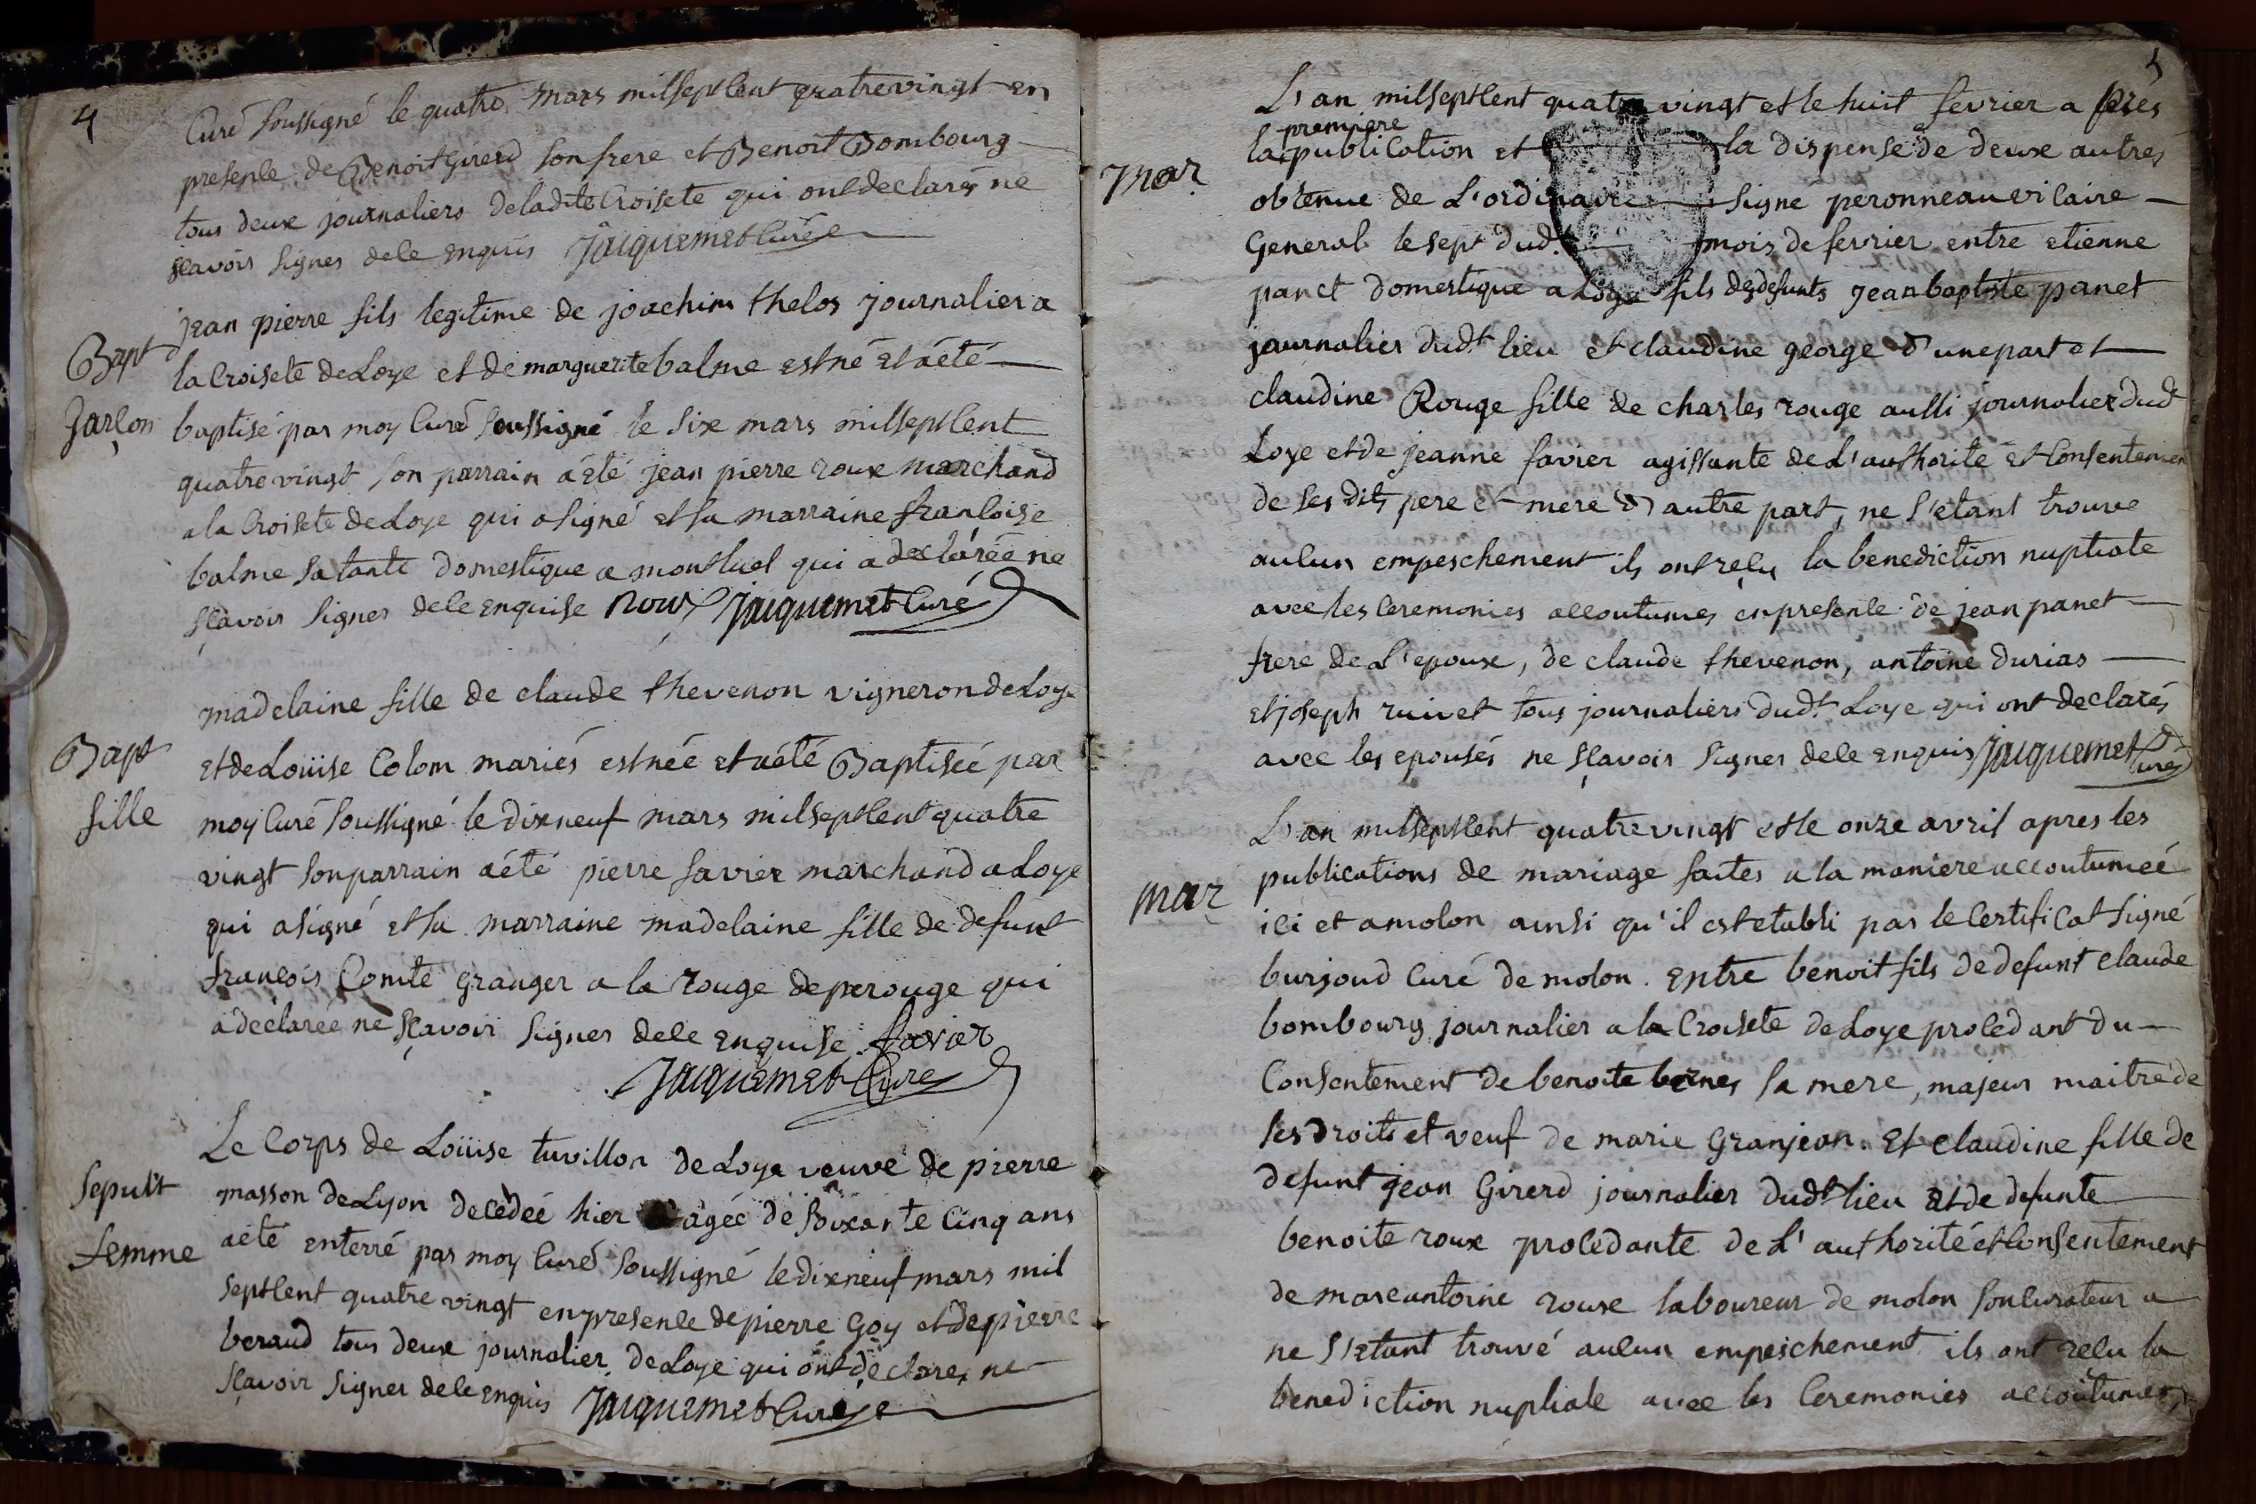 4
Curé soussigné le quatre mars mil sept cent quatre vingt en
presence de Benoit Girerd son frere et Benoit Bombourg
tous deux journaliers de ladite Croisete qui ont declarés ne
sçavoir signer de ce enquis Jacquemet Curé
Bapt
Garçon
jean pierre fils legitime de joachim thelos journalier a
la Croisete de Loye et de marguerite balme est né et a été
baptisé par moy Curé soussigné le six mars mil sept cent
quatre vingt son parrain a été jean pierre roux marchand
a la Croisete de Loye qui a signé et sa marraine françoise
balme sa tante domestique a montluel qui a declarée ne
sçavoir signer de ce enquise Roux Jacquemet Curé
Bapt
fille
madelaine fille de claude thevenon vigneron de Loye
et de Loüise Colom mariés est née et a été Baptisée par
moy Curé soussigné le dix neuf mars mil sept cent quatre
vingt son parrain a été pierre favier marchand a Loye
qui a signé et sa marraine madelaine fille de defunt
françois Comte granger a la rouge de perouge qui
a declarée ne sçavoir signer de ce enquise favier
Jacquemet Curé
Sepult
femme
Le Corps de Loüise tuvillon de Loye veuve de pierre
masson de Lyon decedeé hier agée de soixante cinq ans
a été enterré par moy Curé soussigné le dix neuf mars mil
sept cent quatre vingt en presence de pierre Goy et de pierre
beraud tous deux journalier de Loye qui ont declarés ne
sçavoir signer de ce enquis Jacquemet Curé
5
Mar
L'an mil sept cent quatre vingt et le huit fevrier a pres
premiere
la publication et la dispense de deux autres
obtenue de L'ordinaire signé peronneau vicaire
General le sept dudt mois de fevrier entre etienne
panet domestique a Loye fils des defunts jean baptiste panet
journalier dudt lieu et claudine george d'une part et
claudine Rouge fille de charles rouge aussi journalier dudt
Loye et de jeanne favier agissante de L'authorité et Consentement
de ses dits pere et mere d'autre part, ne s'etant trouvé
aucun empeschement ils ont reçu la benediction nuptiale
avec les Ceremonies accoutumes en presence de jean panet
frere de L'epoux, de claude thevenon, antoine durias
et joseph ruivet tous journaliers dudt Loye qui ont declarés
avec les epousés ne sçavoir signer de ce enquis Jacquemet Curé
mar
L'an mil sept cent quatre vingt et le onze avril apres les
publications de mariage faites a la maniere accoutumeé
ici et a molon ainsi qu'il est etabli par le Certificat signé
burjoud Curé de molon. Entre benoit fils de defunt claude
bombourg journalier a la Croisete de Loye procedant du
Consentement de benoite bernes sa mere, majeur maitre de
ses droits et veuf de marie Granjean. Et claudine fille de
defunt jean Girerd journalier dudt lieu et de defunte
benoite roux procedante de L'authorité et Consentement
de marc antoine roux laboureur de molon son Curateur a
ne s'etant trouvé aucun empeschement ils ont reçu la
benediction nuptiale avec les Ceremonies accoutumes,